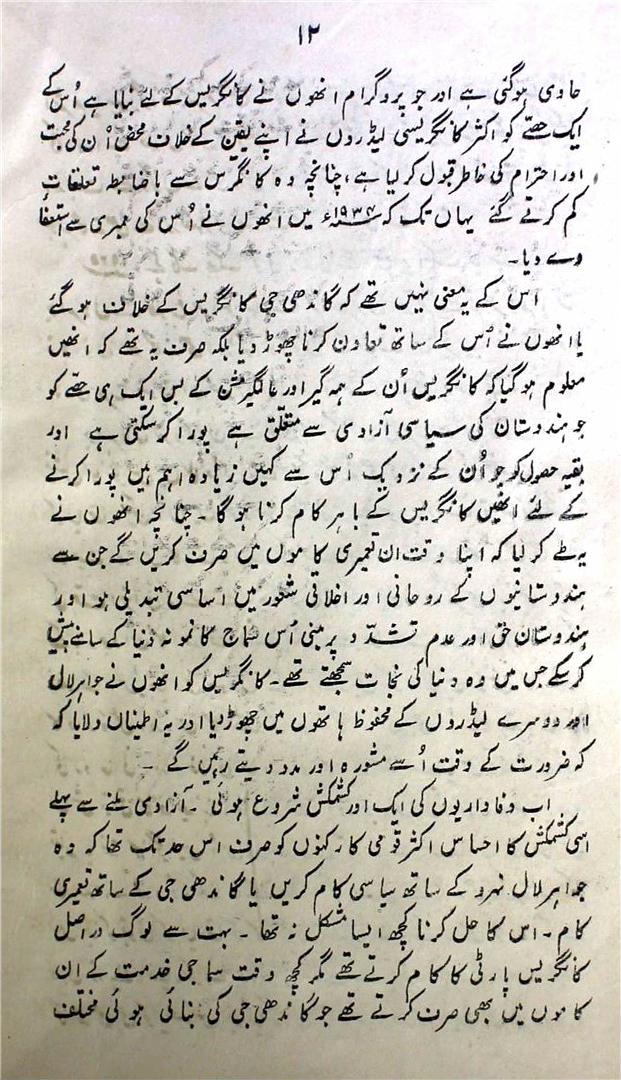 ۱۲
حاوی ہوگئی ہے اور جو پروگرام انھوں نے کانگریس کے لئے بنایا ہے اُس کے
ایک حصّے کو اکثر کانگریسی لیڈروں نے اپنے یقین کے خلاف محض اُن کی محبت
اور احترام کی خاطر قبول کر لیا ہے، چنانچہ وہ کانگرس سے باضابطہ تعلقات
کم کرتے گئے یہاں تک کہ ۱۹۳۴ء میں انھوں نے اُس کی ممبری سے استعفا
دے دیا۔
اس کے یہ معنی نہیں تھے کہ گاندھی جی کانگریس کے خلاف ہو گئے
یا انھوں نے اُس کے ساتھ تعاون کرنا چھوڑ دیا بلکہ صرف یہ تھے کہ انھیں
معلوم ہوگیا کہ کانگریس اُن کے ہمہ گیر اور عالمگیر مشن کے بس ایک ہی حصّے کو
جو ہندوستان کی سیاسی آزادی سے متعلّق ہے پورا کرسکتی ہے اور
بقیہ حصوں کو جو اُن کے نزدیک اس سے کہیں زیادہ اہم ہیں پورا کرنے
کے لئے انھیں کانگریس کے باہر کام کرنا ہوگا۔ چنانچہ انھوں نے
یہ طے کر لیا کہ اپنا وقت ان تعمیری کاموں میں صرف کریں گے جن سے
ہندوستانیوں کے روحانی اور اخلاقی شعور میں اساسی تبدیلی ہو اور
ہندوستان حق اور عدم تشدّد پر مبنی اُس سماج کا نمونہ دنیا کے سامنے پیش
کرسکے جس میں وہ دنیا کی نجات سمجھتے تھے۔ کانگریس کو انھوں نے جواہرلال
اور دوسرے لیڈروں کے محفوظ ہاتھوں میں چھوڑ دیا اور یہ اطمینان دلایا کہ
کہ ضرورت کے وقت اُسے مشورہ اور مدد دیتے رہیں گے ۔
اب وفاداریوں کی ایک اور کشمکش شروع ہوئی ۔ آزادی ملنے سے پہلے
اسی کشمکش کا احساس اکثر قومی کارکنوں کو صرف اس حد تک تھا کہ وہ
جواہر لال نہرو کے ساتھ سیاسی کام کریں یا گاندھی جی کے ساتھ تعمیری
کام۔ اس کا حل کرنا کچھ ایسا مشکل نہ تھا ۔ بہت سے لوگ دراصل
کانگریس پارٹی کا کام کرتے تھے مگر کچھ وقت سماجی خدمت کے اِن
کاموں میں بھی صرف کرتے تھے جو گاندھی جی کی بنائی ہوئی مختلف